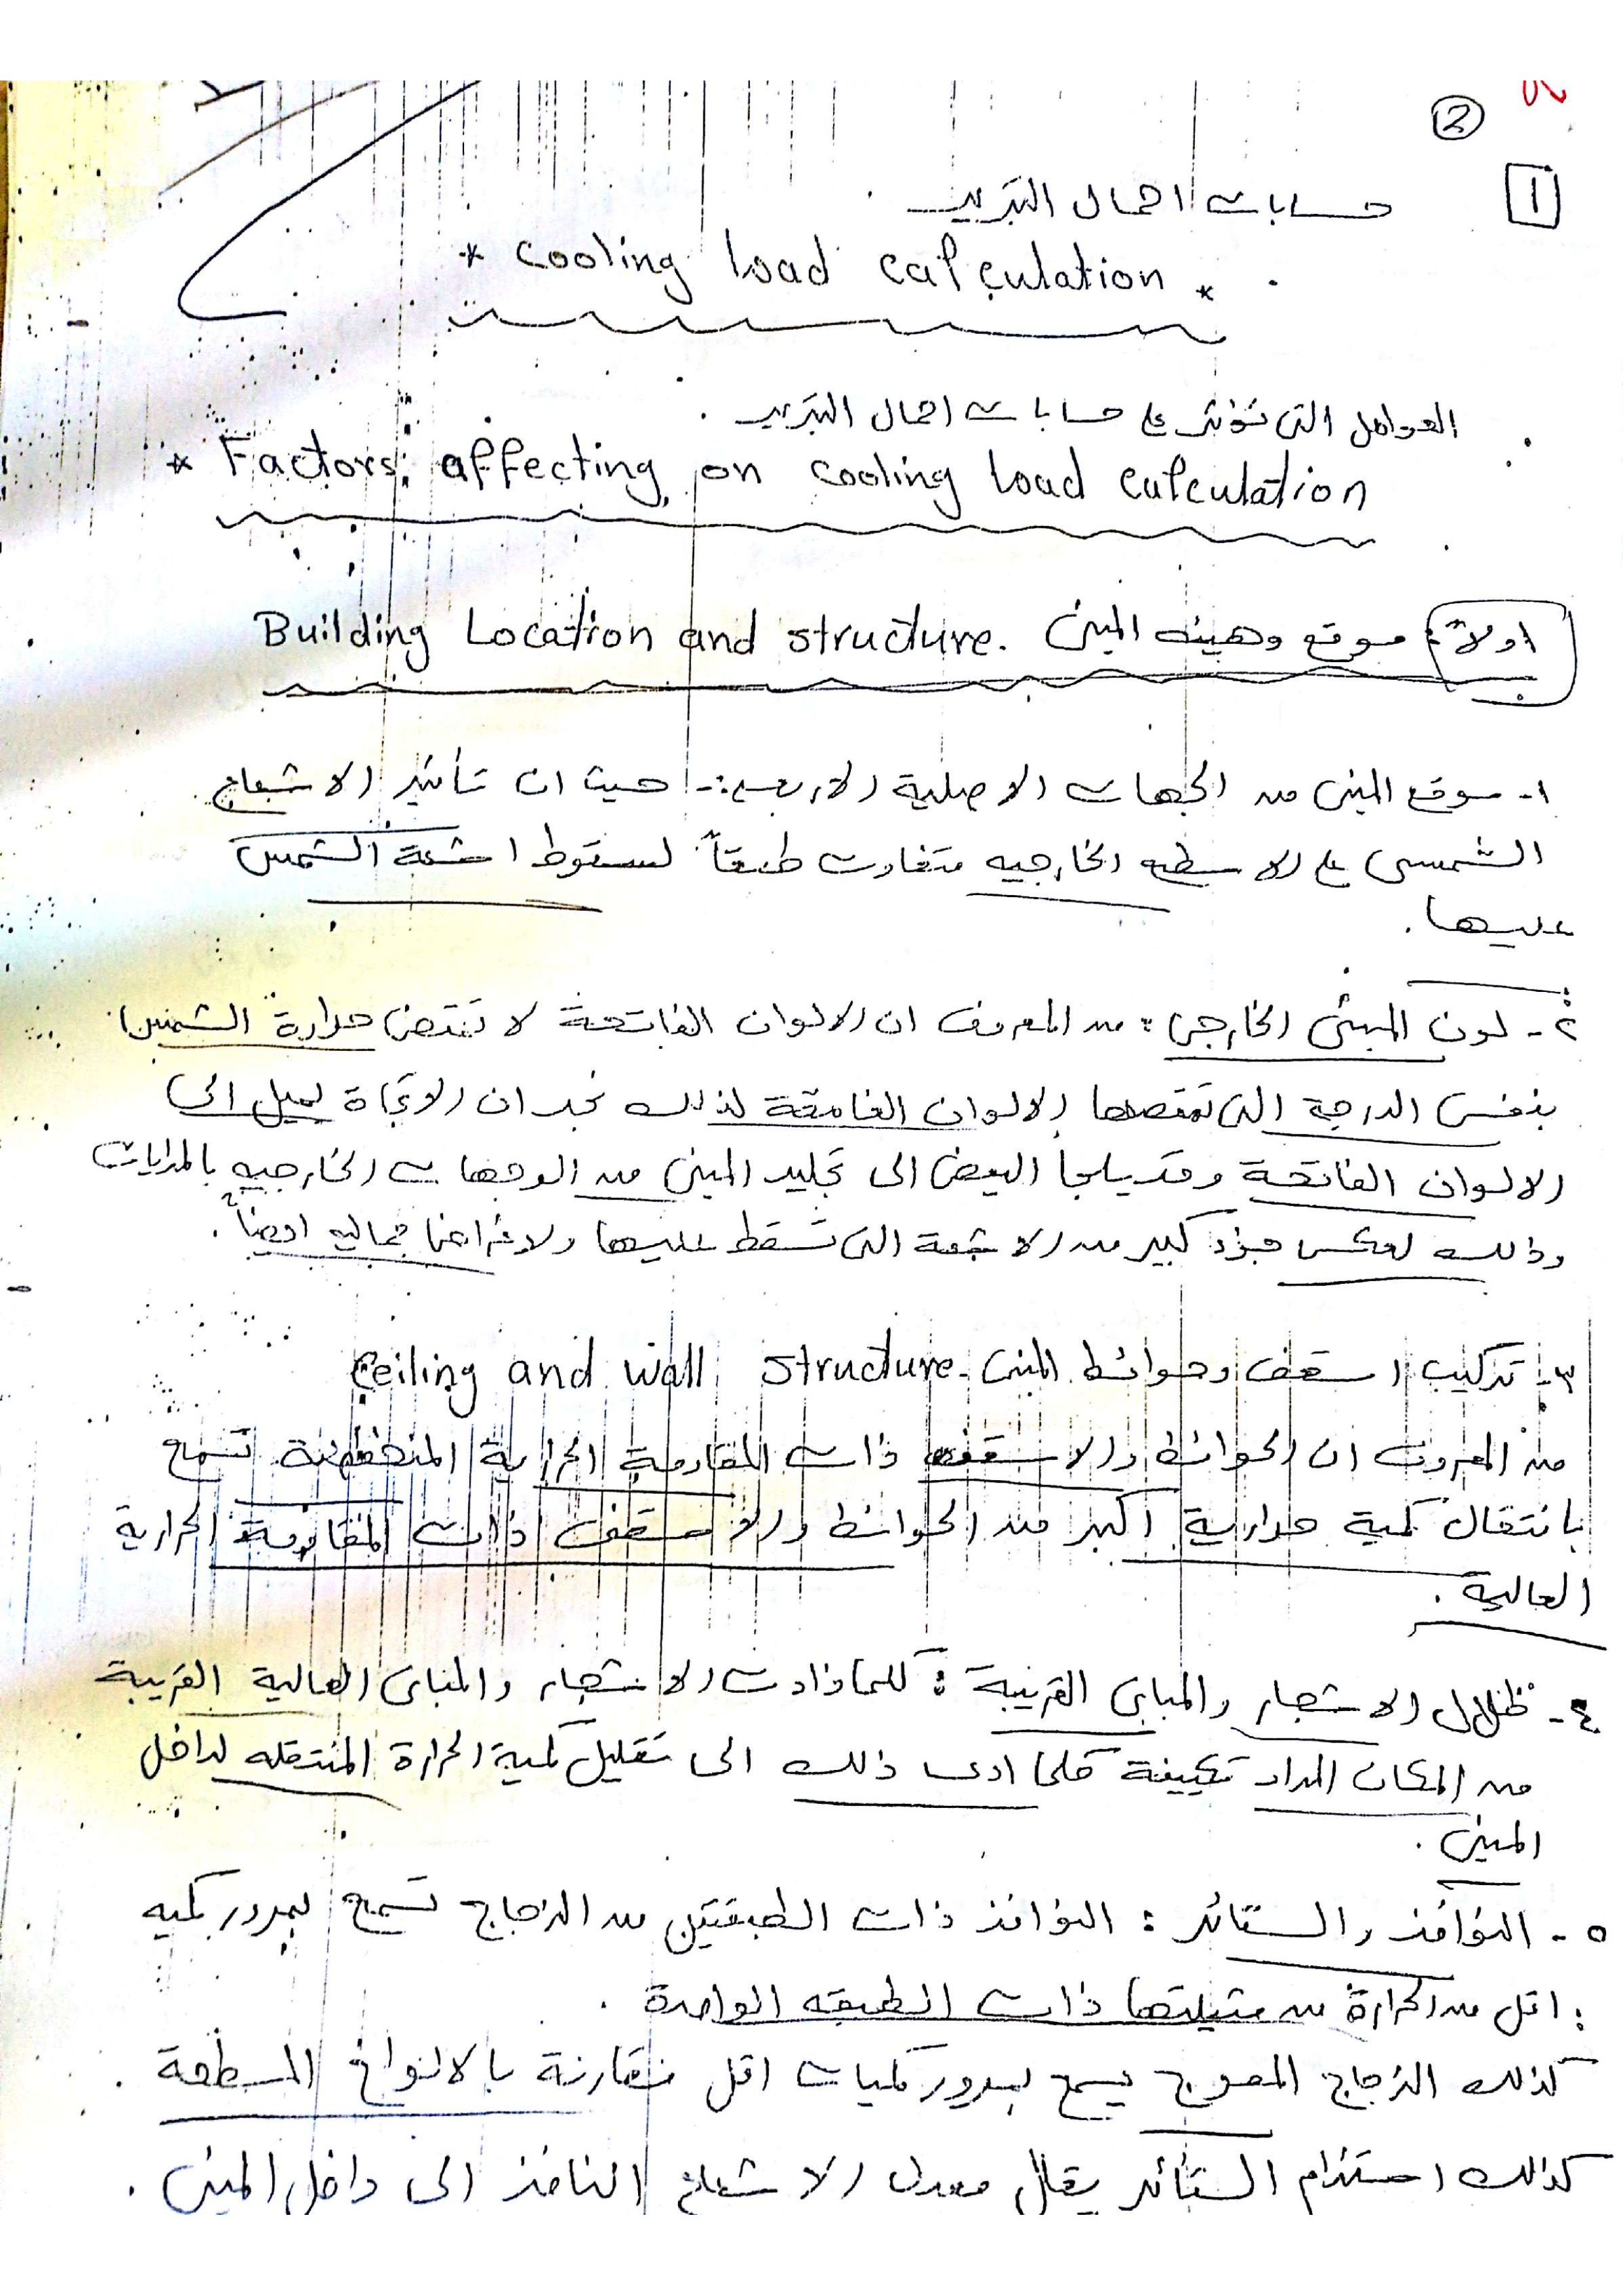 ②
1
حسابات احمال التبريد
* cooling load calculation *
العوامل التى تؤثر على حسابات احمال التبريد.
* Factors affecting on cooling load calculation
اولاً: موقع وهيئه المبنى Building Location and structure.
١- موقع المبنى من الجهات الاصلية الاربعه:- حيث ان تأثير الاشعاع
الشمسى على الاسطح الخارجيه متفاوت طبقاً لسقوط اشعة الشمس
عليها.
٢- لون المبنى الخارجى: من المعروف ان الالوان الفاتحة لا تمتص حرارة الشمس
بنفس الدرجة التى تمتصها الالوان الغامقة لذلك نجد ان الاتجاة يميل الى
الالوان الفاتحة وقد يلجا البعض الى تجليد المبنى من الوجهات الخارجيه بالمرايات
وذلك لعكس جزء كبير من الاشعة التى تسقط عليها ولاغراض جماليه ايضاً.
٣- تركيب اسقف وحوائط المبنى Ceiling and wall structure-
من المعروف ان الحوائط والاسقف ذات المقاومة الحرارية المنخفضة تسمح
بانتقال كمية حرارية اكبر من الحوائط والاسقف ذات المقاومة الحرارية
العالية.
٤- ظلال الاشجار والمبانى القريبة: كلما ذادت الاشجار والمبانى العالية القريبة
من المكان المراد تكييفة كلما ادى ذلك الى تقليل كمية الحرارة المنتقله لداخل
المبنى.
٥- النوافذ والستائر: النوافذ ذات الطبقتين من الزجاج تسمح بمرور كميه
اقل من الحرارة من مثيلتها ذات الطبقه الواحدة.
كذلك الزجاج المعوج يسمح بمرور كميات اقل مقارنة بالانواع المسطحة.
كذلك استخدام الستائر يقلل معدل الاشعاع النافذ الى داخل المبنى.